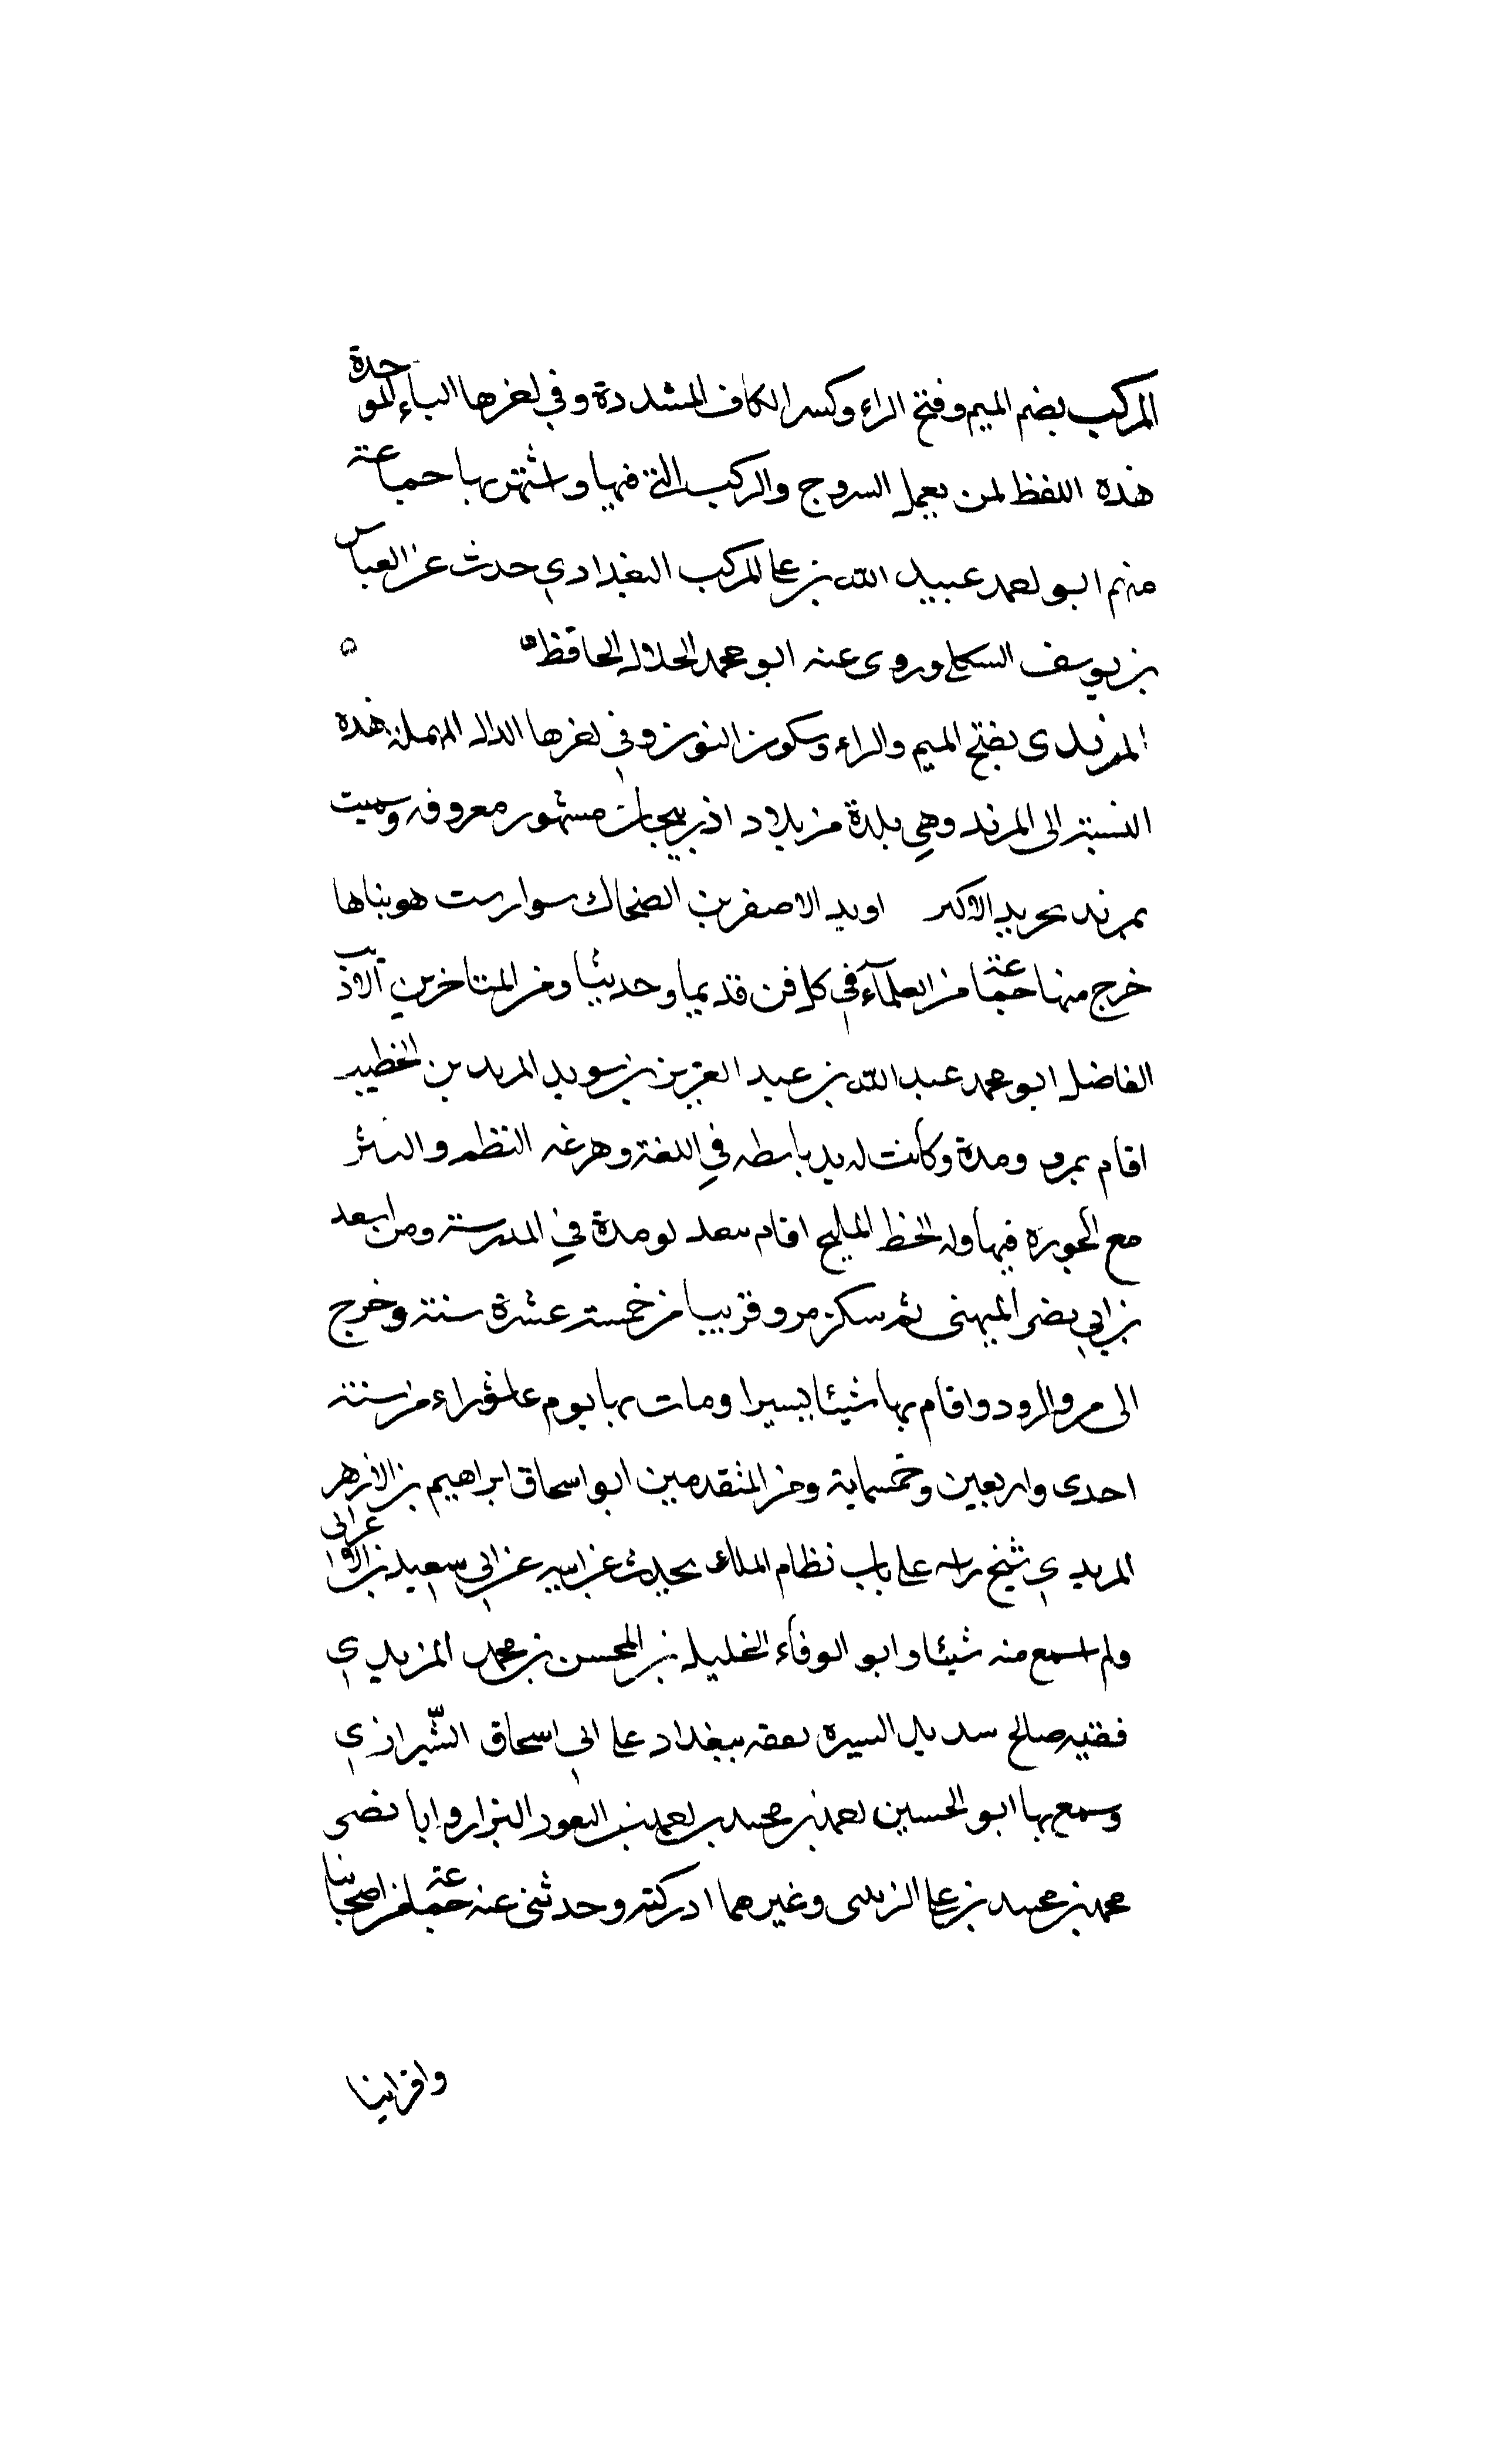 المركب بضم الميم وفتح الراء وكسر الكاف المشددة وفي اخرها الباء الموحدة
هذه اللفظ لمن يعمل السروج والركيب التي فيها واشتهر بها جماعة
منهم ابو احمد عبيد الله بن علي المركب البغدادي حدث عن العباس
بن يوسف السكلي وروى عنه ابو محمد الخلال الحافظ ه ه
المرندى بفتح الميم والراء وسكون النون وفي اخرها الدال المهملة هذه
النسبة الى المرند وهي بلدة من بلاد اذربيجان مشهور معروفه وسميت
بمرند الاكبر الاصغر بن الضحاك سوارست هو بناها
خرج منها جماعة من العلماء في كل فن قديما وحديثا ومن المتاخرين الاديب
الفاضل ابو محمد عبد الله بن عبد العزيز بن سويد بن الخطيب
اقام بمرو ومدة وكانت له يد باسطه في اللغة النظم والنثر
مع الجودة فيها وله الخط المليح اقام مدة في المدرسة اسعد
بن ابي نصر الميهنى ثم سكن مرو قريبا من خمسة عشرة سنة وخرج
الى مرو الرود واقام بها شيئا يسيرا ومات بها يوم عاشوراء من سنة
احدى واربعين وخمسماية ومن المتقدمين ابو اسحاق ابراهيم بن الازهر
المريدي شيخ راسه على باب نظام الملك يحدث عن ابيه عن ابي سعيد بن الاعرابى
ولم اسمع منه شيئا وابو الوفاء الخليل بن المحسن بن محمد المزيدي
فقيه صالح سديد السيره تفقه ببغداد على ابى اسحاق الشيرازي
وسمع بها ابو الحسين احمد بن محمد بن احمد بن النقور البزار وابا نصر
محمد بن محمد بن علي الزينبى وغيرهما ادركته وحدثنى عنه جماعة من اصحابنا
واقراينا